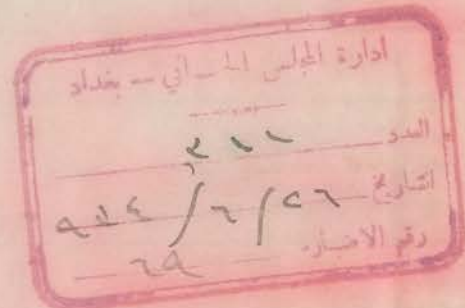 ادارة المجلس — بغداد
العدد
التاريخ ٢٦ / ٦ / ٩٦٤
رقم الاضبارة ٦٩